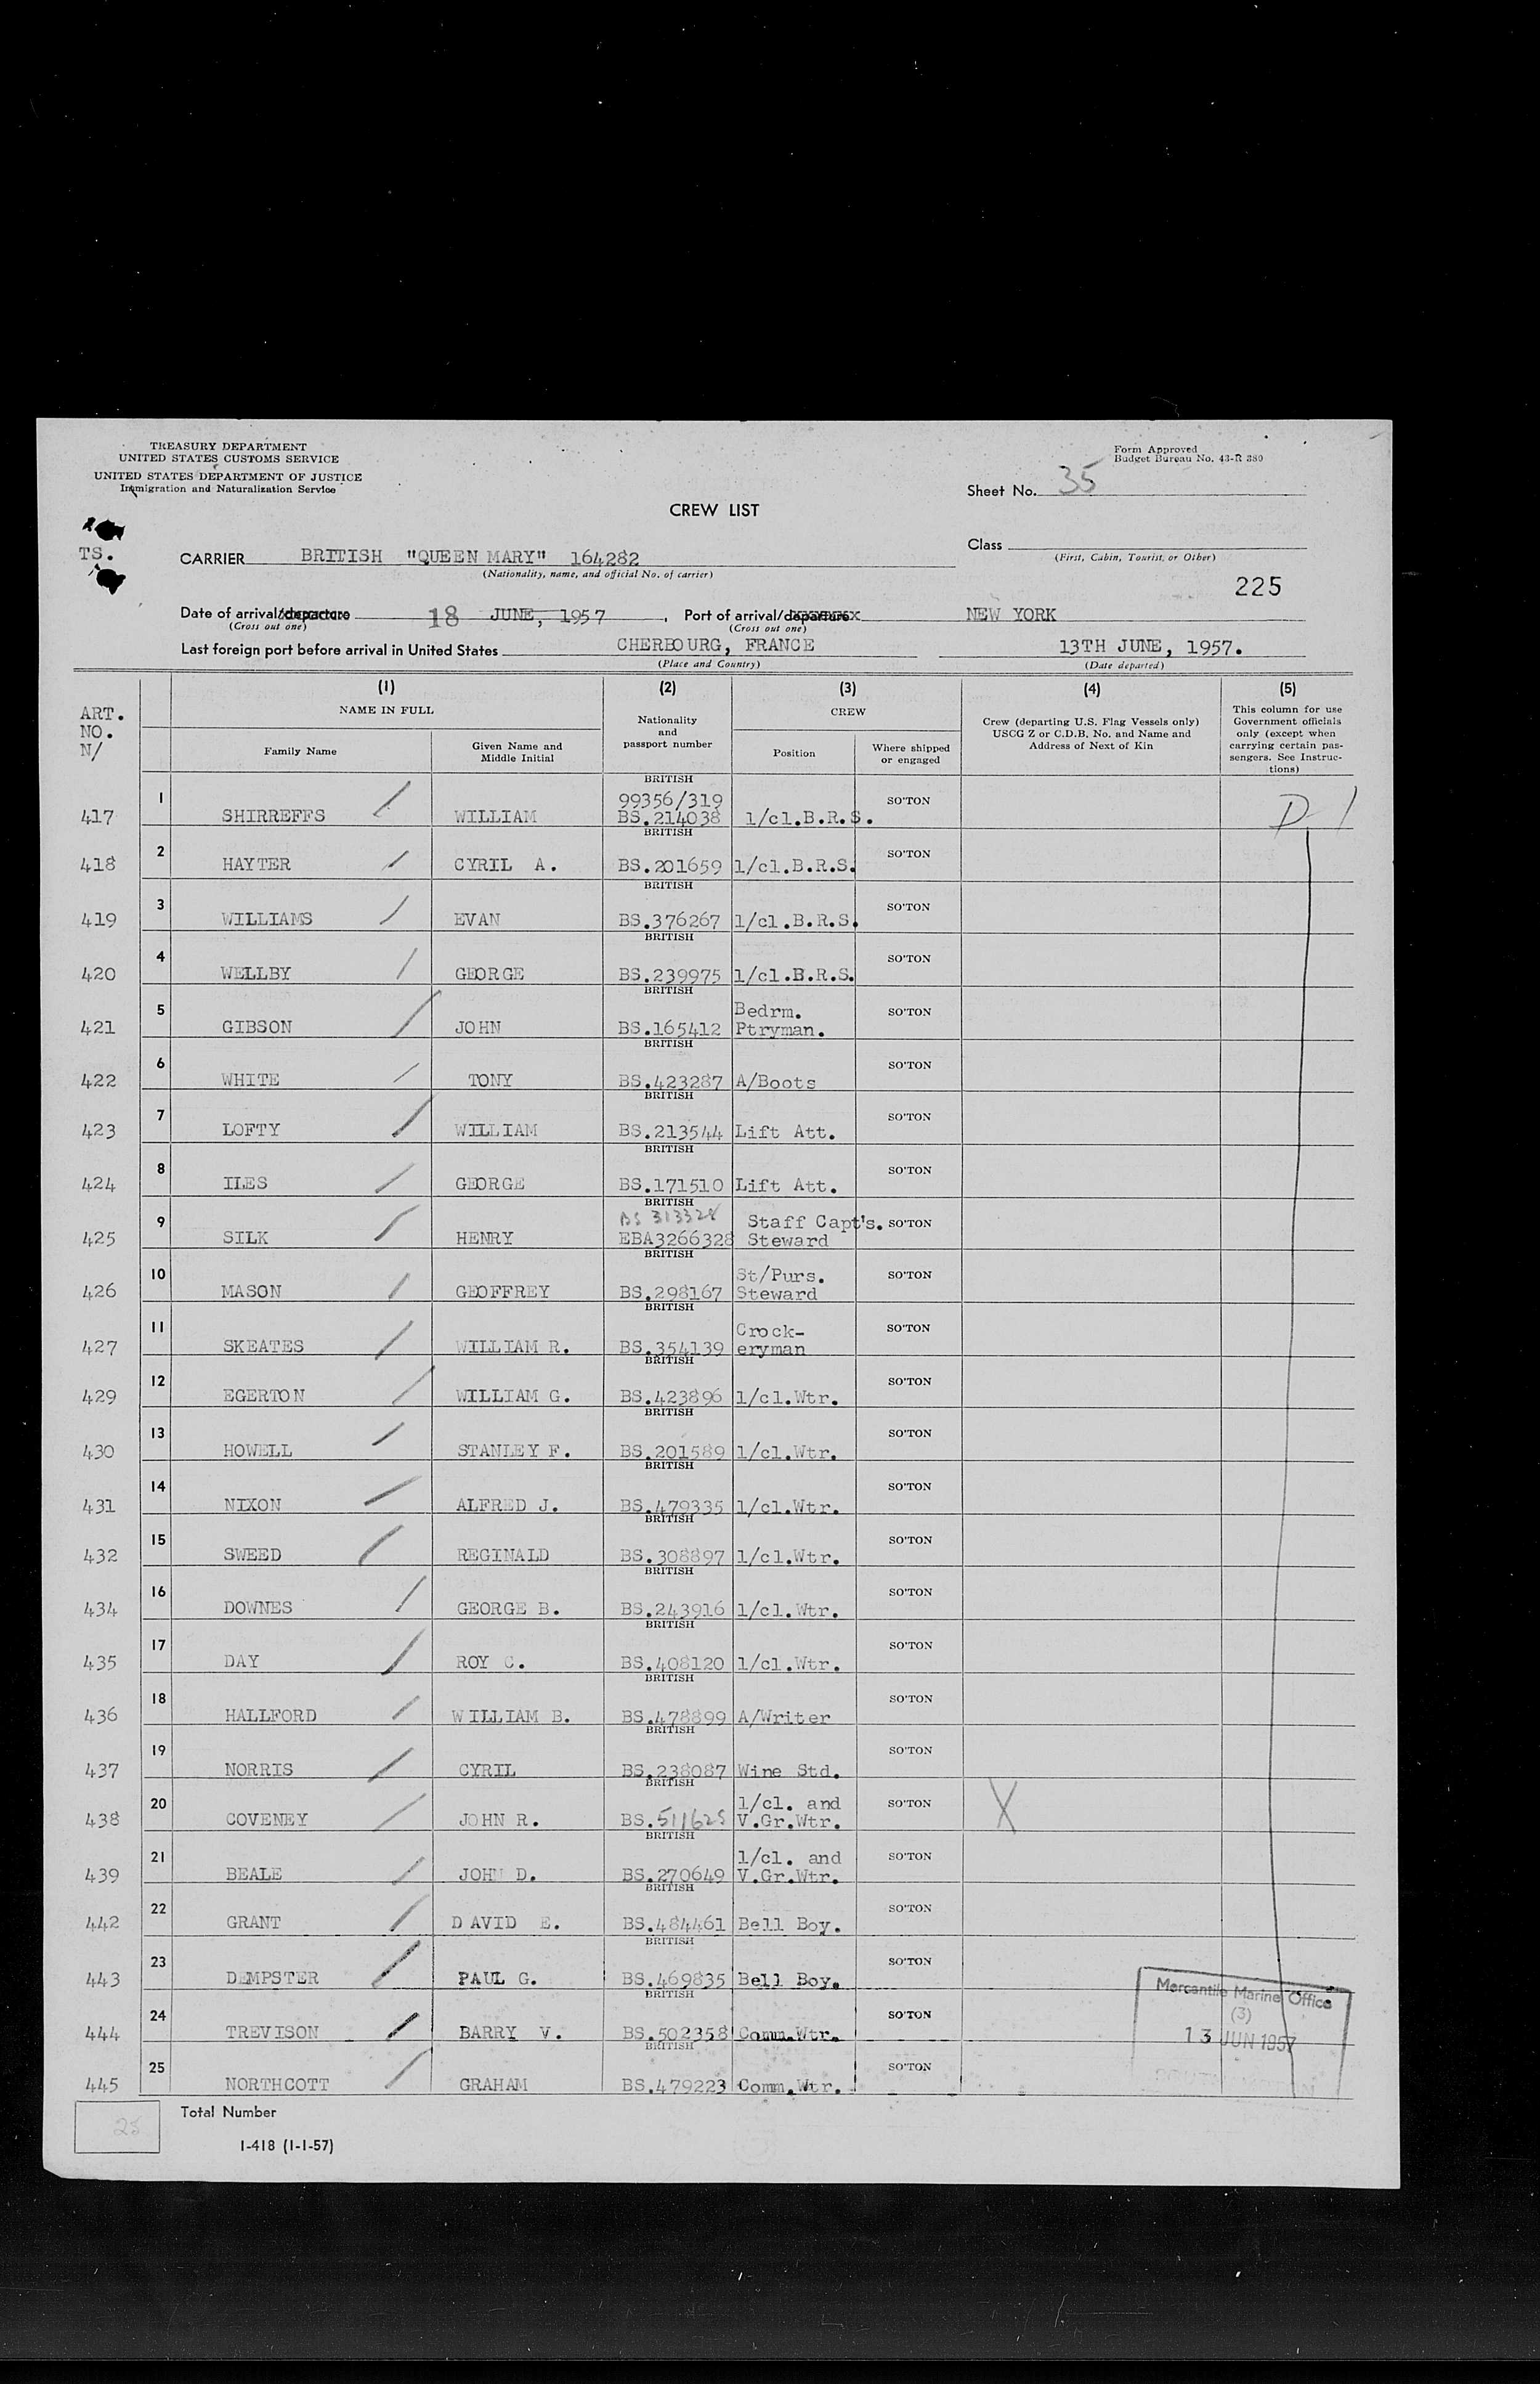 TREASURY DEPARTMENT
UNITED STATES CUSTOMS SERVICE
UNITED STATES DEPARTMENT OF JUSTICE
Immigration and Naturalization Service
Form Approved
Budget Bureau No. 43-R 380
Sheet No. 35
CREW LIST
TS.
CARRIER BRITISH "QUEEN MARY" 164282
(Nationality, name, and official No. of carrier)
Class
(First, Cabin, Tourist, or Other)
225
Date of arrival/departure 18 JUNE, 1957, Port of arrival/departure NEW YORK
(Cross out one) (Cross out one)
Last foreign port before arrival in United States CHERBOURG, FRANCE 13TH JUNE, 1957.
(Place and Country) (Date departed)
ART. NO. N/
(1) NAME IN FULL
Family Name
Given Name and Middle Initial
(2) Nationality and passport number
(3) CREW
Position
Where shipped or engaged
(4) Crew (departing U.S. Flag Vessels only) USCG Z or C.D.B. No. and Name and Address of Next of Kin
(5) This column for use Government officials only (except when carrying certain passengers. See Instructions)
417 1 SHIRREFFS WILLIAM BRITISH 99356/319 BS.214038 1/cl.B.R.S. SO'TON D 1
418 2 HAYTER CYRIL A. BRITISH BS.201659 1/cl.B.R.S. SO'TON
419 3 WILLIAMS EVAN BRITISH BS.376267 1/cl.B.R.S. SO'TON
420 4 WELLBY GEORGE BRITISH BS.239975 1/cl.B.R.S. SO'TON
421 5 GIBSON JOHN BRITISH BS.165412 Bedrm. Ptryman. SO'TON
422 6 WHITE TONY BRITISH BS.423287 A/Boots SO'TON
423 7 LOFTY WILLIAM BRITISH BS.213544 Lift Att. SO'TON
424 8 ILES GEORGE BRITISH BS.171510 Lift Att. SO'TON
425 9 SILK HENRY BRITISH BS 313328 EBA3266328 Staff Capt's. Steward SO'TON
426 10 MASON GEOFFREY BRITISH BS.298167 St/Purs. Steward SO'TON
427 11 SKEATES WILLIAM R. BRITISH BS.354139 Crock-eryman SO'TON
429 12 EGERTON WILLIAM G. BRITISH BS.423896 1/cl.Wtr. SO'TON
430 13 HOWELL STANLEY F. BRITISH BS.201589 1/cl.Wtr. SO'TON
431 14 NIXON ALFRED J. BRITISH BS.479335 1/cl.Wtr. SO'TON
432 15 SWEED REGINALD BRITISH BS.308897 1/cl.Wtr. SO'TON
434 16 DOWNES GEORGE B. BRITISH BS.243916 1/cl.Wtr. SO'TON
435 17 DAY ROY C. BRITISH BS.408120 1/cl.Wtr. SO'TON
436 18 HALLFORD WILLIAM B. BRITISH BS.478899 A/Writer SO'TON
437 19 NORRIS CYRIL BRITISH BS.238087 Wine Std. SO'TON
438 20 COVENEY JOHN R. BRITISH BS.511628 1/cl. and V.Gr.Wtr. SO'TON X
439 21 BEALE JOHN D. BRITISH BS.270649 1/cl. and V.Gr.Wtr. SO'TON
442 22 GRANT DAVID E. BRITISH BS.484461 Bell Boy. SO'TON
443 23 DEMPSTER PAUL G. BRITISH BS.469835 Bell Boy. SO'TON
444 24 TREVISON BARRY V. BRITISH BS.502358 Comm.Wtr. SO'TON
445 25 NORTHCOTT GRAHAM BRITISH BS.479223 Comm.Wtr. SO'TON
Mercantile Marine Office
(3)
13 JUN 1957
25
Total Number
I-418 (1-1-57)